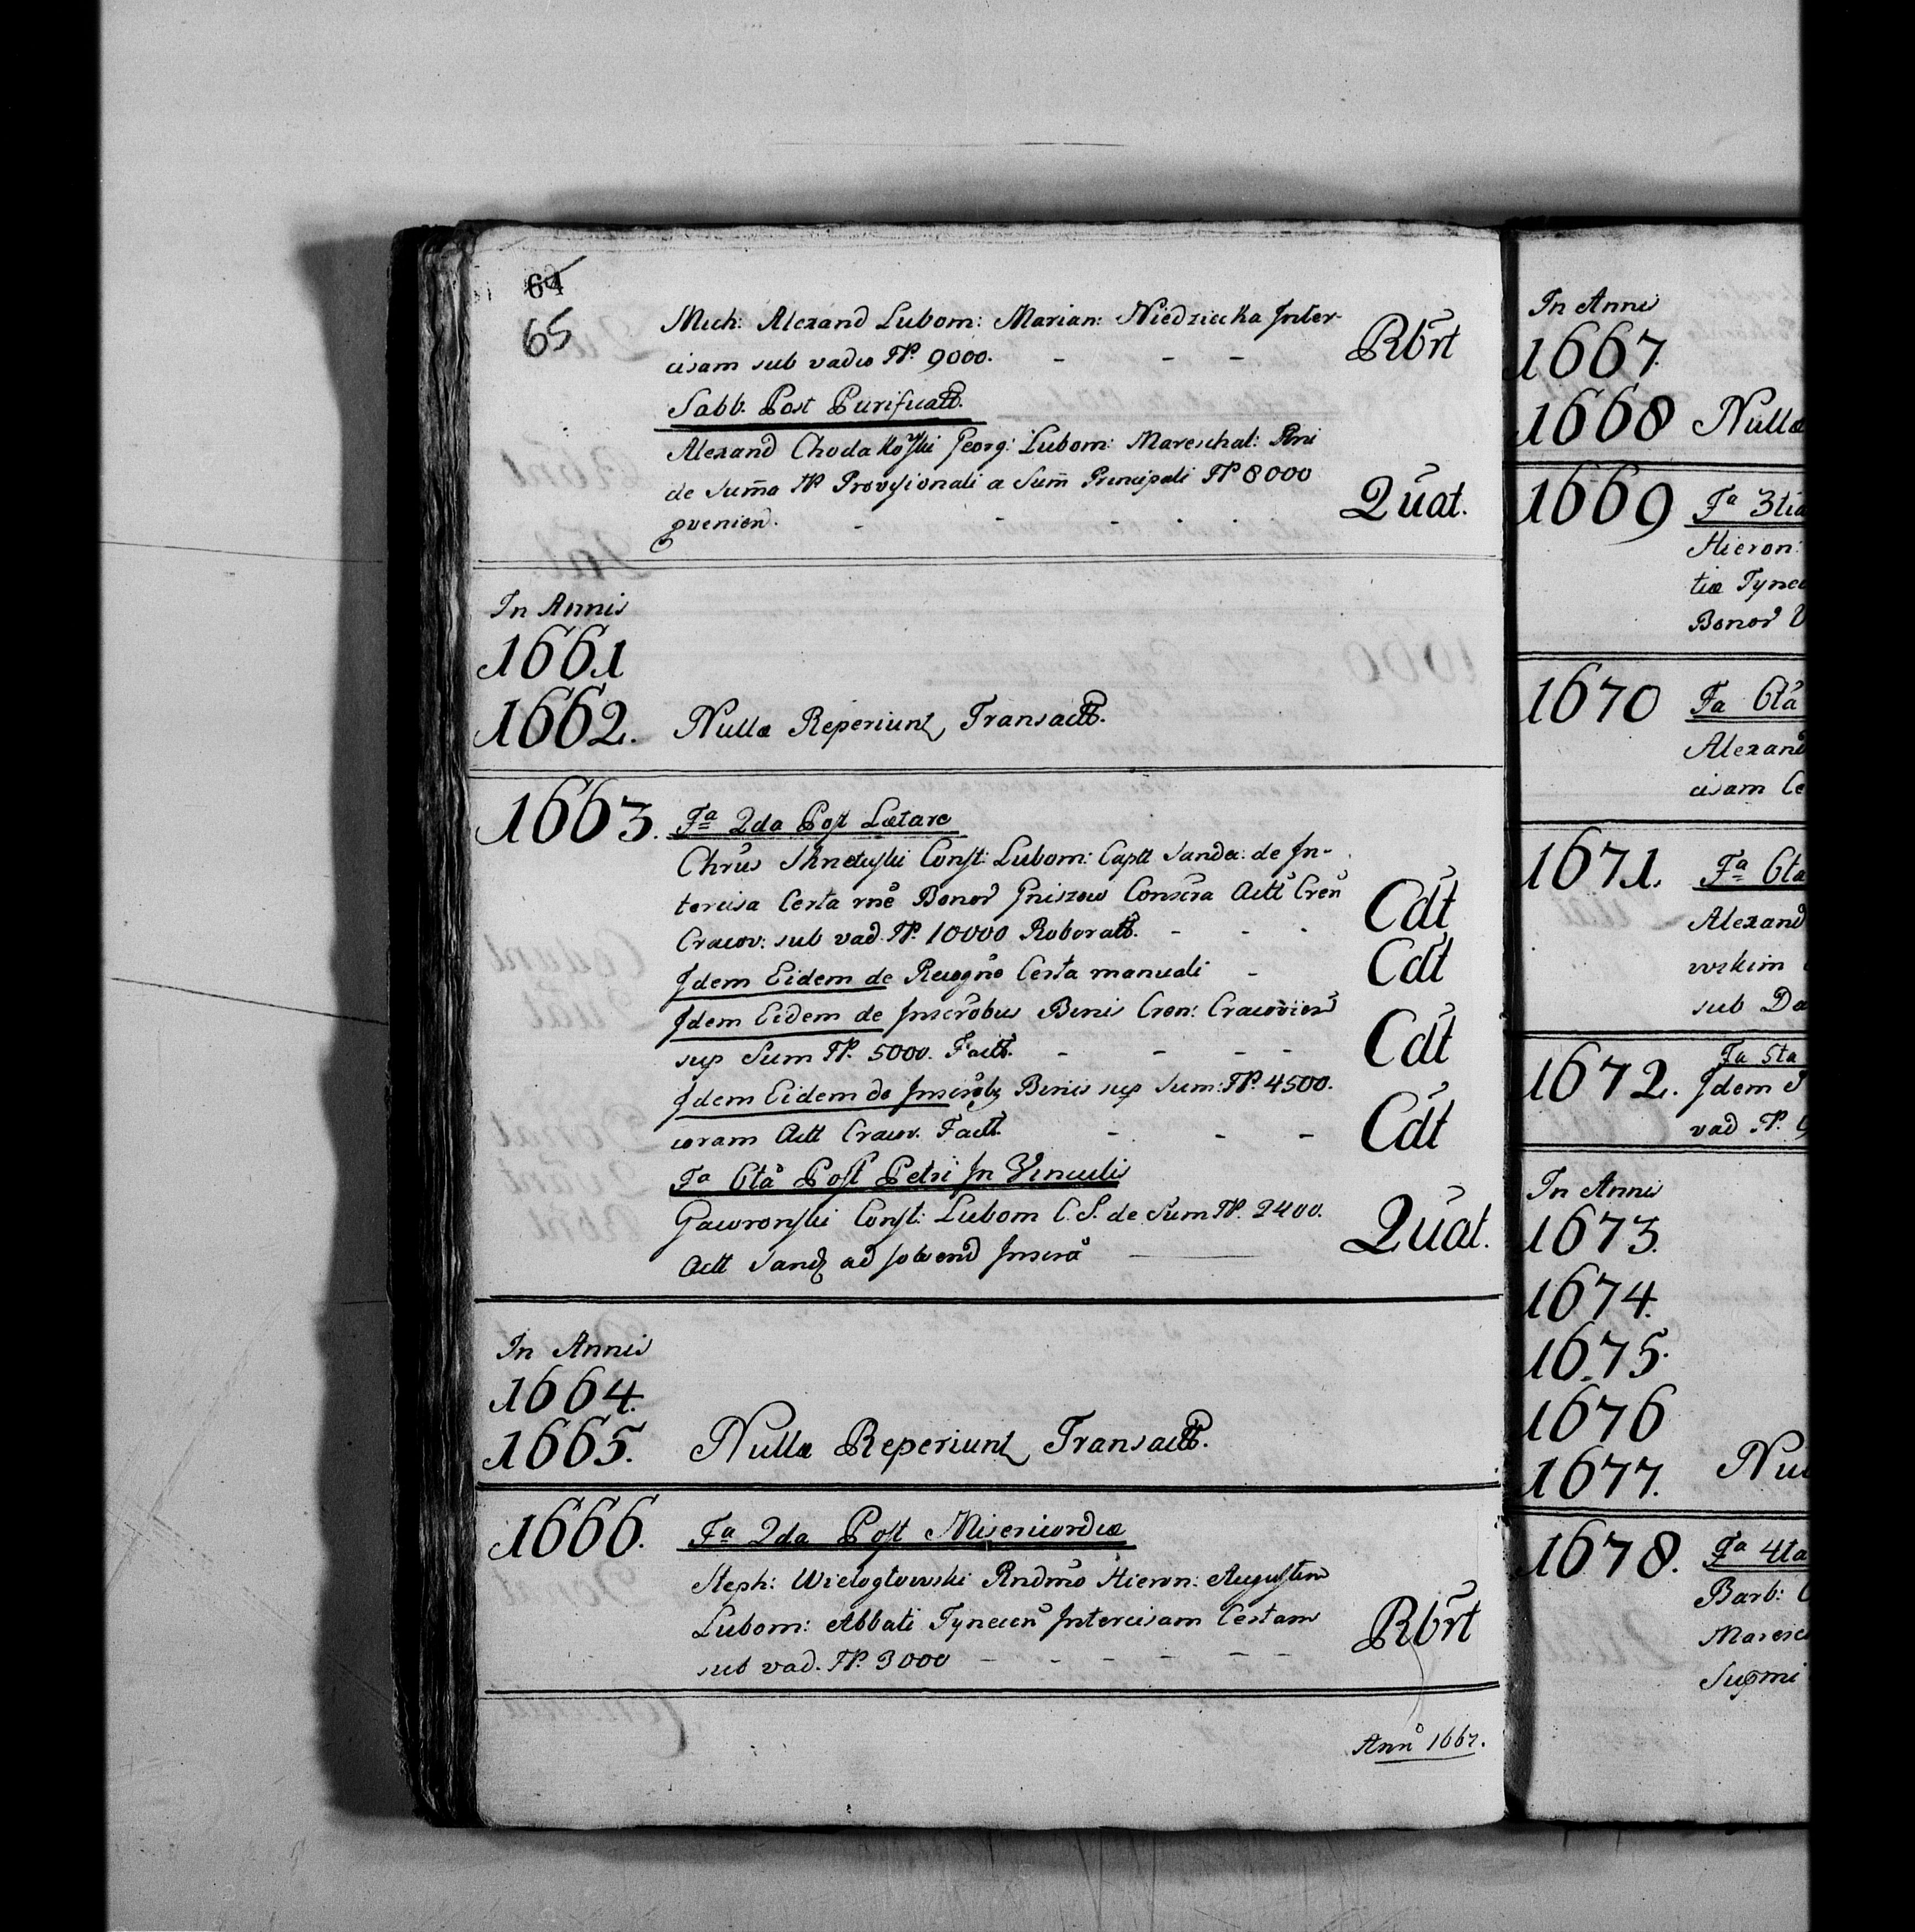 64
65
Mich: Alexand Lubom: Marian: Niedziecka Inter-
cisam sub vadio FP. 9000. - - - Rbrt
Sabb. Post Purificatt.
Alexand Chodakoski Georg: Lubom: Mareschal: Rni
de Summa FP Provisionali a Sum Principali FP 8000
pvenien. - - - - - Quat.
In Annis
1661
1662. Nullæ Reperiunt Transactt.
1663. Fa 2da Post Lætare
Chrus Sknetuski Const: Lubom: Captt Sandec: de In-
tercisa Certa rne Bonor Gniszow Conscra Actt Cren
Cracov: sub vad. FP. 10000 Roboratt. - - - Cdt
Idem Eidem de Recogno Certa manuali - Cdt
Idem Eidem de Inscrobus Binis Cren: Cracovien
sup Sum FP. 5000. Factt. - - - - Cdt
Idem Eidem de Inscrobq Binis sup Sum: FP. 4500.
coram Actt Cracov. Factt. - - - Cdt
Fa 6ta Post Petri In Vinculis
Gawronski Const: Lubom C. S. de Sum FP. 2400.
Actt Sand ad solvend Inscra - Quat.
In Annis
1664.
1665. Nullæ Reperiunt Transactt.
1666. Fa 2da Post Misericordiæ
Steph: Wieloglowski Rndmo Hieron: Augustin
Lubom: Abbati Tynecen Intercisam Certam
sub vad. FP. 3000 - - - - - - Rbrt
Anno 1667.
In Annis
1667.
1668 Nullæ
1669 Fa 3tia
Hieron:
tiæ Tynec
Bonor
1670 Fa 6ta
Alexand
cisam Ce
1671. Fa 6ta
Alexand
wskim
sub Da
1672. Fa 5ta
Idem
vad FP.
In Annis
1673.
1674.
1675.
1676
1677. Nul
1678. Fa 4ta
Barb:
Maresc
Supmi